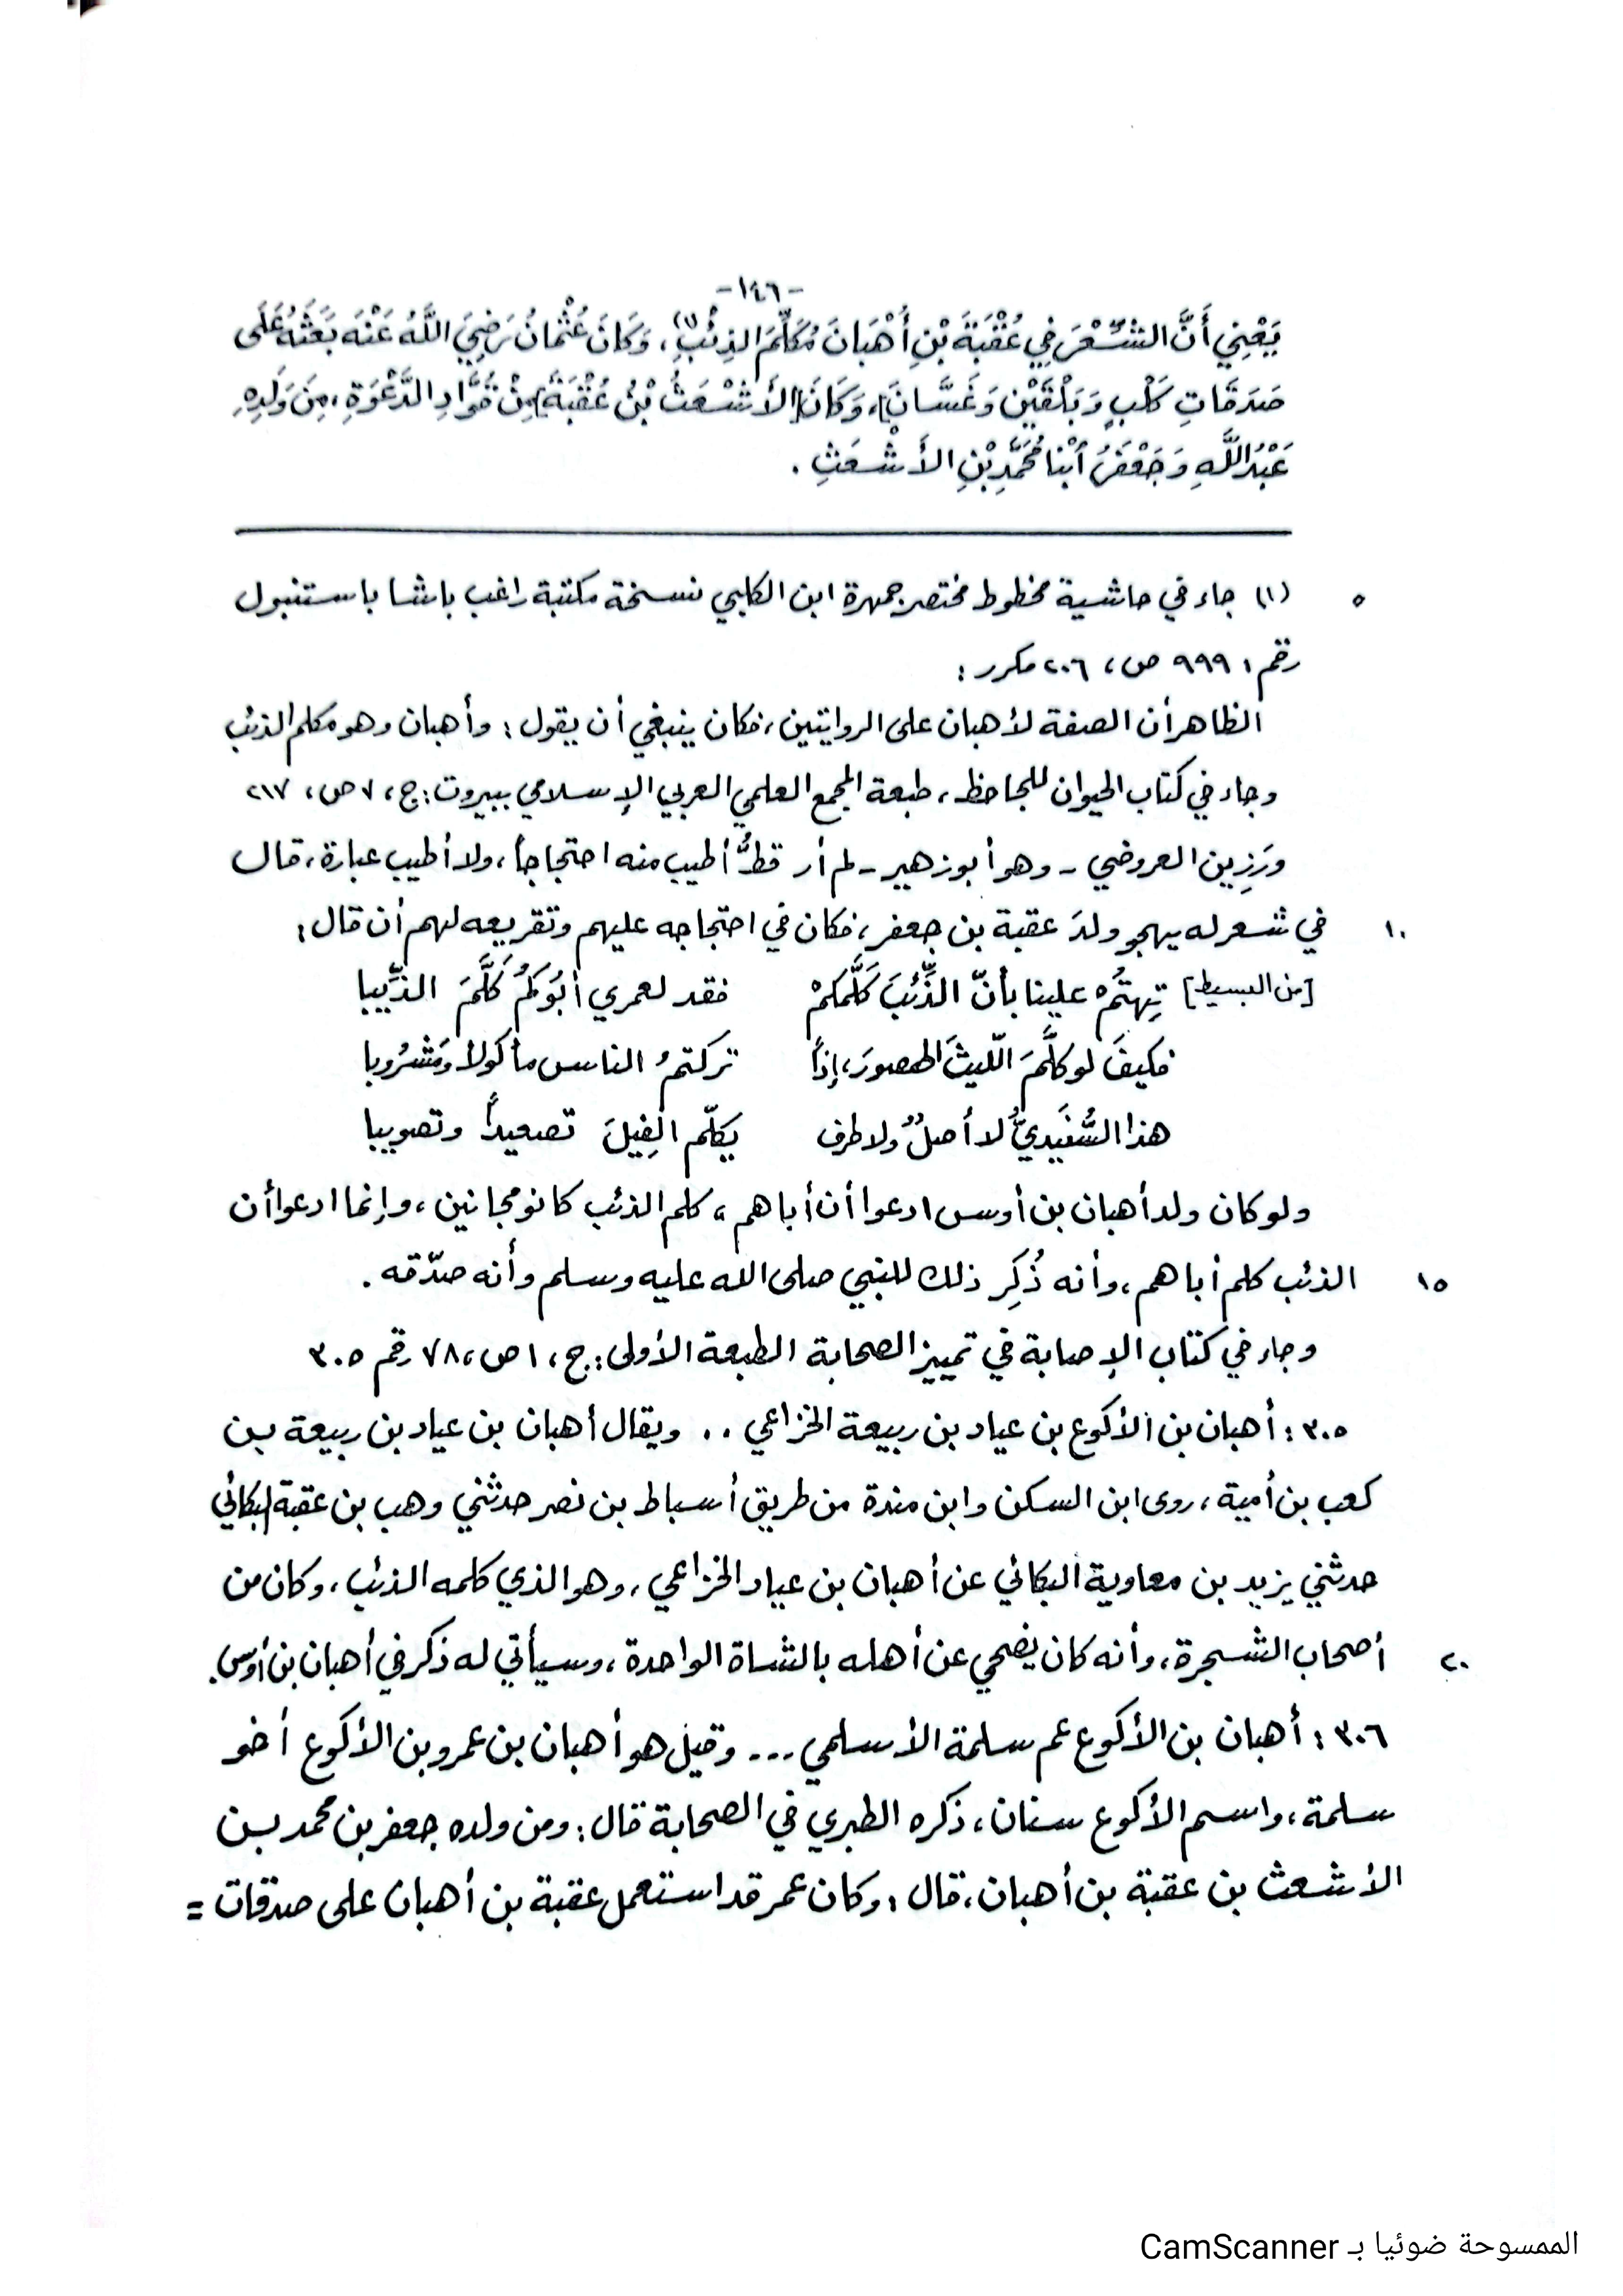 -١٤٦-
يَعْنِي أَنَّ الشِّعْرَ فِي عُقْبَةَ بْنِ أُهْبَانَ مُكَلِّمَ الذِئْبِ(١)، وَكَانَ عُثْمَانُ رَضِيَ اللَّهُ عَنْهَ بَعَثَهُ عَلَى
صَدَقَاتِ كَلْبٍ وَبَلْقَيْنِ وَغَسَّانَ]، وَكَانَ [الأَشْعَثُ بْنُ عُقْبَةَ] مِنْ قُوَّادِ الدَّعْوَةِ، مِنَ وَلَدِهِ
عَبْدُ اللَّهِ وَجَعْفَرُ اُبْنَا مُحَمَّدِ بْنِ الأَشْعَثِ .
٥ (١) جاء في حاشية مخطوط مختصر جمهرة ابن الكلبي نسخة مكتبة راغب باشا باستنبول
رقم: ٩٩٩ ص، ٢٠٦ مكرر :
الظاهر أن الصفة لأهبان على الروايتين، فكان ينبغي أن يقول : وأهبان وهو مكلم الذئب
وجاء في كتاب الحيوان للجاحظ، طبعة المجمع العلمي العربي الإسلامي ببيروت: ج، ٧ ص، ٢١٧
ورَزِين العروضي - وهو أبو زهير - لم أر قطُّ أطيب منه احتجاجاً، ولا أطيب عبارة، قال
١٠ في شعر له يهجو ولدَ عقبة بن جعفر، فكان في احتجاجه عليهم وتقريعه لهم أن قال:
[من البسيط] تِهتُمْ علينا بأنّ الذِّئبَ كَلَّمكمْ فقد لعمري أبُوكُمُ كَلَّمَ الذِّيبا
فكيفَ لو كلَّمَ اللّيثَ الهصورَ، إذاً تركتمُ الناس مأكولا ومَشْرُوبا
هذا السُّنَيديُّ لا أصلٌ ولا طرف يكلّم الفِيلَ تصعيداً وتصويبا
ولو كان ولد أهبان بن أوس ادعوا أن أباهم، كلم الذئب كانو مجانين، وإنما ادعوا أن
١٥ الذئب كلم أباهم، وأنه ذُكِر ذلك للنبي صلى الله عليه وسلم وأنه صدّقه .
وجاء في كتاب الإصابة في تمييز الصحابة الطبعة الأولى: ج، ١ ص، ٧٨ رقم ٣٠٥
٣٠٥ : أهبان بن الأكوع بن عياد بن ربيعة الخزاعي .. ويقال أهبان بن عياد بن ربيعة بن
كعب بن أمية، روى ابن السكن وابن مندة من طريق أسباط بن نصر حدثني وهب بن عقبة البكائي
حدثني يزيد بن معاوية البكائي عن أهبان بن عياد الخزاعي، وهو الذي كلمه الذئب، وكان من
٢٠ أصحاب الشجرة، وأنه كان يضحي عن أهله بالشاة الواحدة، وسيأتي له ذكر في أهبان بن أوس.
٣٠٦ : أهبان بن الأكوع عم سلمة الأسلمي ... وقيل هو أهبان بن عمرو بن الأكوع أخو
سلمة، واسم الأكوع سنان، ذكره الطبري في الصحابة قال: ومن ولده جعفر بن محمد بن
الأشعث بن عقبة بن أهبان، قال : وكان عمر قد استعمل عقبة بن أهبان على صدقات =
الممسوحة ضوئيا بـ CamScanner